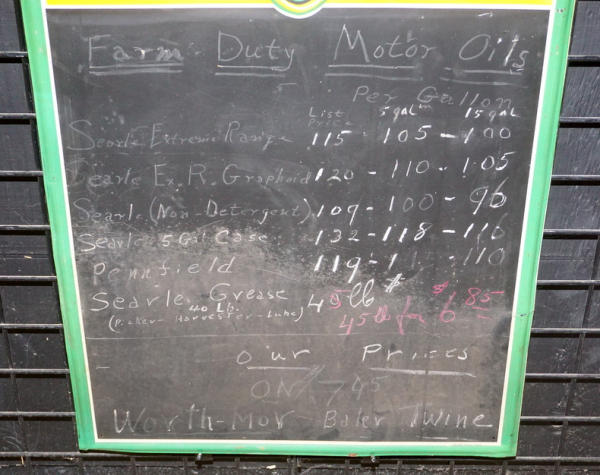 Farm Duty Motor Oils
Per Gallon
List Price 5 gal 15 gal
Searle Extreme Range 115 - 105 - 100
Searle Ex. R. Graphoid 120 - 110 - 1.05
Searle (Non-Detergent) 109 - 100 - 96
Searle 5 Gal Case 132 - 118 - 116
Pennfield 119 - 110
Searle Grease 45 lb #
(Picker-Harvester-Lube) 40 Lb. 45 lb for $6.85
Our Prices
ON 745
Worth-Mor Baler Twine